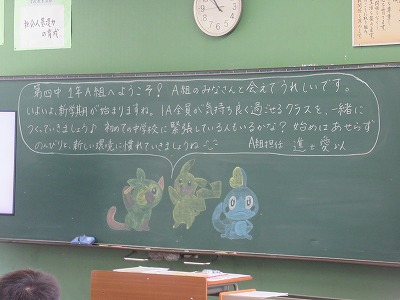 社会人基礎力
の育成
第四中 1年A組へようこそ! A組のみなさんと会えてうれしいです。
いよいよ、新学期が始まりますね。1A全員が気持ち良く過ごせるクラスを、一緒に
つくっていきましょう♪ 初めての中学校に緊張している人もいるかな? 始めはあせらず
のんびりと、新しい環境に慣れていきましょうね
A組担任